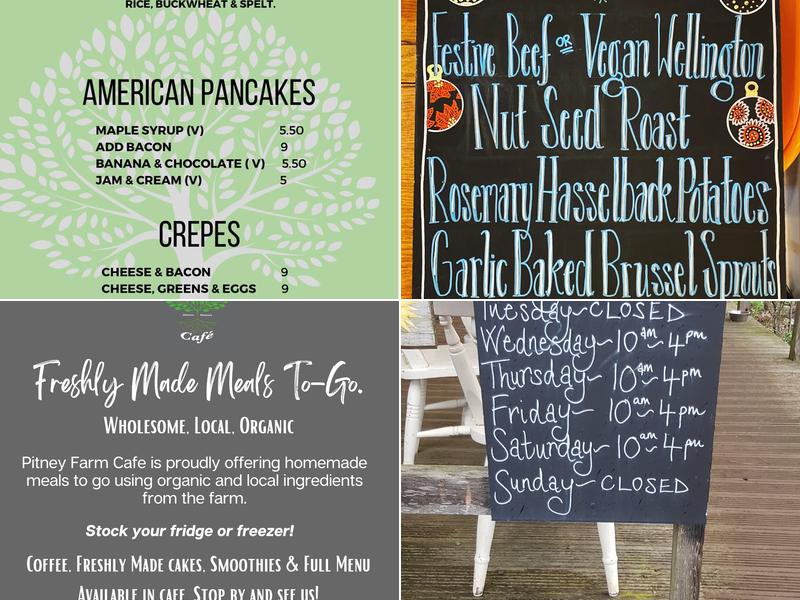 RICE, BUCKWHEAT & SPELT.
AMERICAN PANCAKES
MAPLE SYRUP (V) 5.50
ADD BACON 9
BANANA & CHOCOLATE ( V) 5.50
JAM & CREAM (V) 5
CREPES
CHEESE & BACON 9
CHEESE, GREENS & EGGS 9
Festive Beef OR Vegan Wellington
Nut Seed Roast
Rosemary Hasselback Potatoes
Garlic Baked Brussel Sprouts
Café
Freshly Made Meals To-Go.
Wholesome, Local, Organic
Pitney Farm Cafe is proudly offering homemade
meals to go using organic and local ingredients
from the farm.
Stock your fridge or freezer!
Coffee, Freshly Made cakes, Smoothies & Full Menu
Available in cafe. Stop by and see us!
Tuesday~CLOSED
Wednesday~ 10am~4pm
Thursday~ 10am~4pm
Friday~ 10am~4pm
Saturday~ 10am~4pm
Sunday~ CLOSED